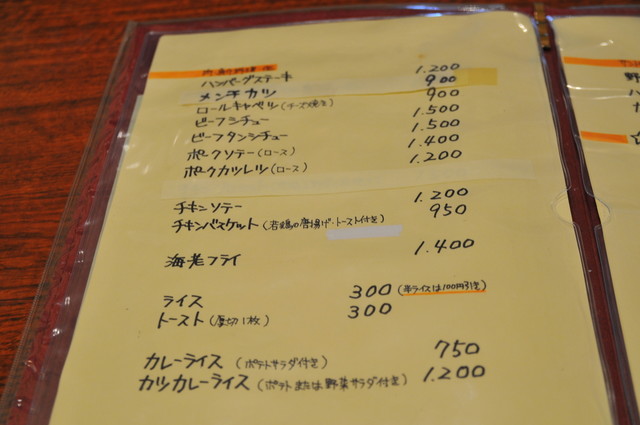 ハンバーグステーキ 1.200
メンチカツ 900
ロールキャベツ(チーズ焼き) 900
ビーフシチュー 1.500
ビーフタンシチュー 1.500
ポークソテー(ロース) 1.400
ポークカツレツ(ロース) 1.200
チキンソテー 1.200
チキンバスケット(若鶏の唐揚げ・トースト付き) 950
海老フライ 1.400
ライス 300 (半ライスは100円引き)
トースト(厚切1枚) 300
カレーライス (ポテトサラダ付き) 750
カツカレーライス (ポテトまたは野菜サラダ付き) 1.200